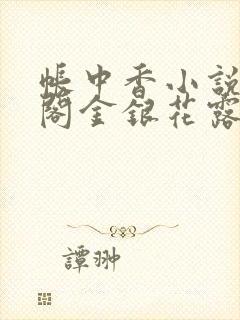 帳中香小說
閣金銀花露
譚翀